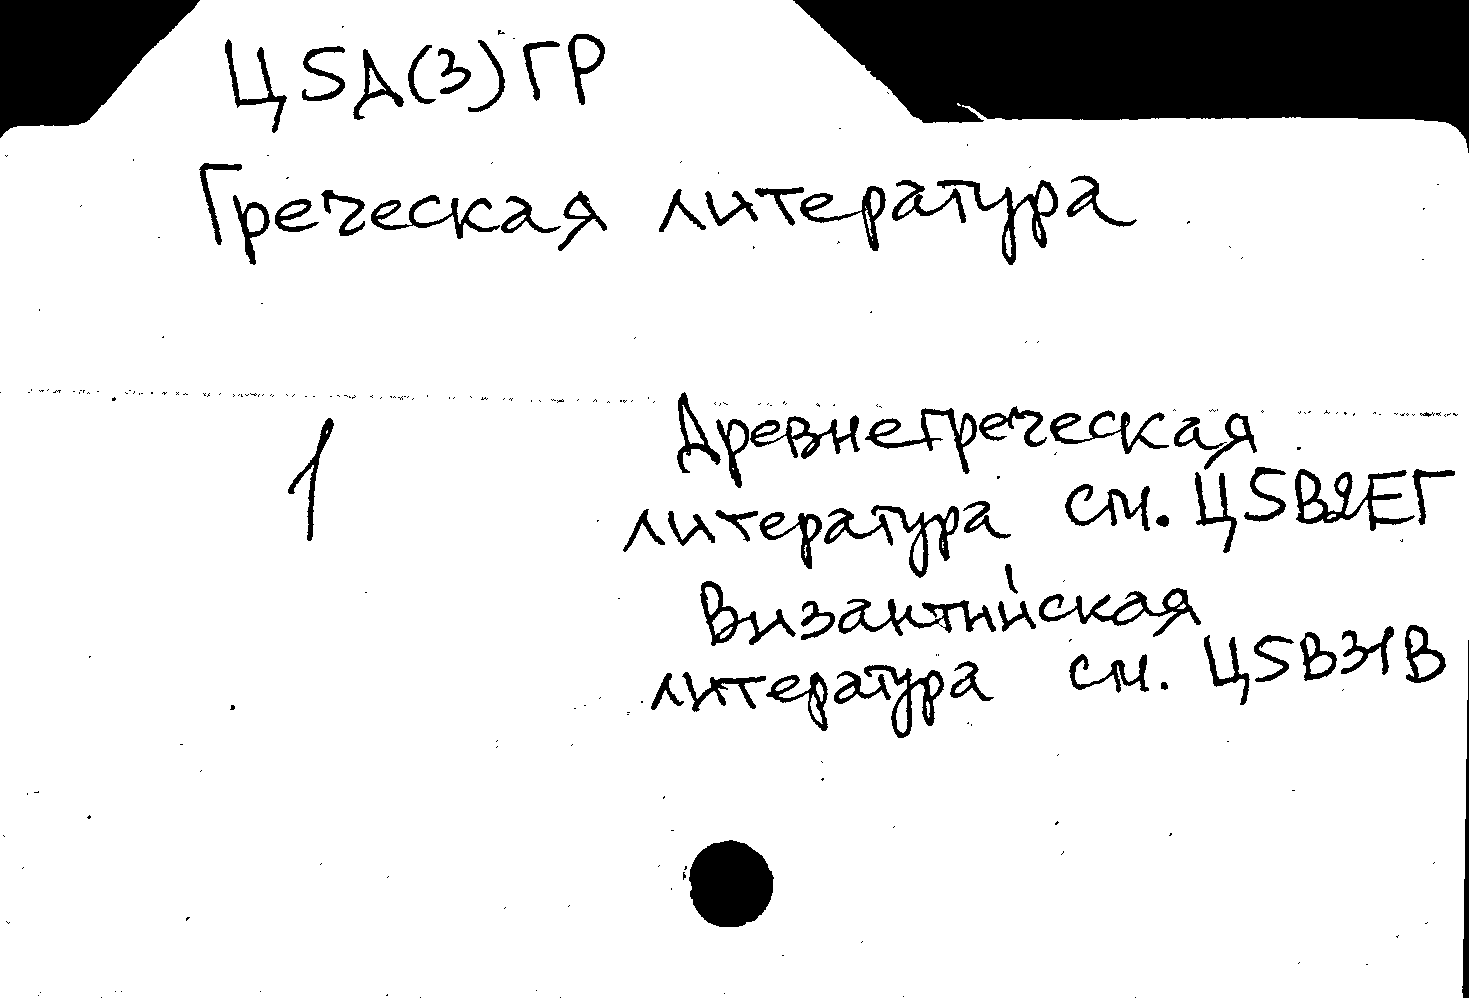 Ц5Д(3)ГР
Греческая литература
1
Древнегреческая
литература см. Ц5В2ЕГ
Византийская
литература см. Ц5В31В